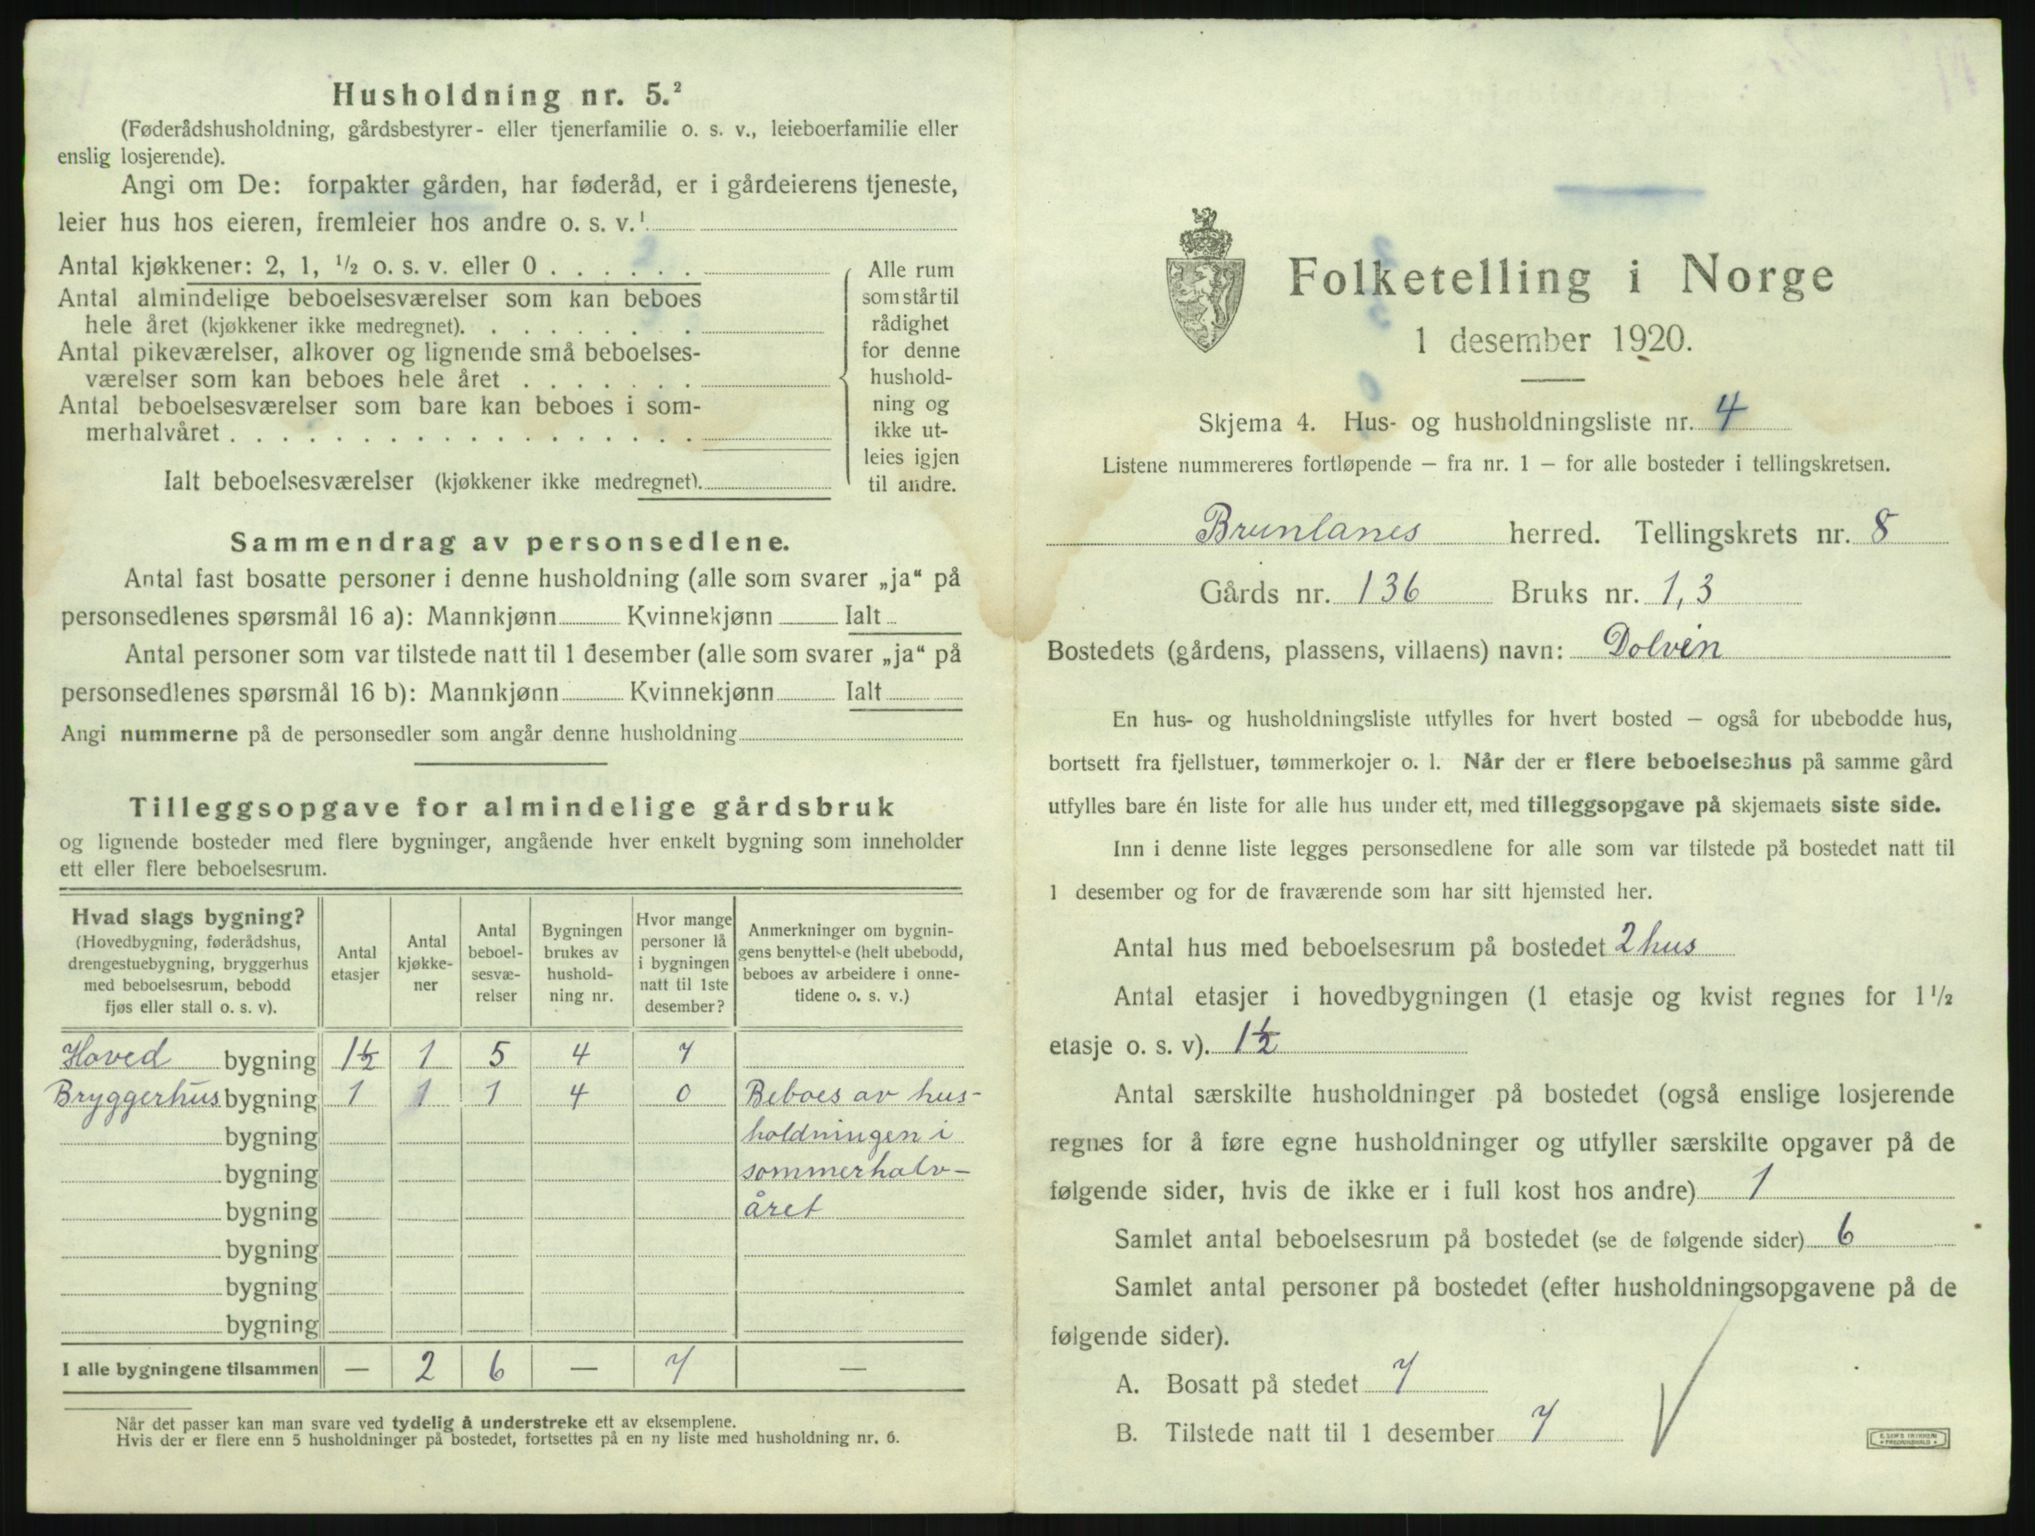 Husholdning nr. 5.²
(Føderådshusholdning, gårdsbestyrer- eller tjenerfamilie o. s. v., leieboerfamilie eller
enslig losjerende).
Angi om De: forpakter gården, har føderåd, er i gårdeierens tjeneste,
leier hus hos eieren, fremleier hos andre o. s. v.¹
Antal kjøkkener: 2, 1, ½ o. s. v. eller 0 . . . . . .
Antal almindelige beboelsesværelser som kan beboes
hele året (kjøkkener ikke medregnet). . . . . . . . .
Antal pikeværelser, alkover og lignende små beboelses-
værelser som kan beboes hele året . . . . . . .
Antal beboelsesværelser som bare kan beboes i som-
merhalvåret . . . . . . . . . . . . . . . . . .
Ialt beboelsesværelser (kjøkkener ikke medregnet).
Alle rum
som står til
rådighet
for denne
hushold-
ning og
ikke ut-
leies igjen
til andre.
Sammendrag av personsedlene.
Antal fast bosatte personer i denne husholdning (alle som svarer „ja“ på
personsedlenes spørsmål 16 a): Mannkjønn Kvinnekjønn Ialt
Antal personer som var tilstede natt til 1 desember (alle som svarer „ja“ på
personsedlenes spørsmål 16 b): Mannkjønn Kvinnekjønn Ialt
Angi nummerne på de personsedler som angår denne husholdning
Tilleggsopgave for almindelige gårdsbruk
og lignende bosteder med flere bygninger, angående hver enkelt bygning som inneholder
ett eller flere beboelsesrum.
Hvad slags bygning?
(Hovedbygning, føderådshus,
drengestuebygning, bryggerhus
med beboelsesrum, bebodd
fjøs eller stall o. s. v).
Antal
etasjer
Antal
kjøkke-
ner
Antal
beboel-
sesvæ-
relser
Bygningen
brukes av
hushold-
ning nr.
Hvor mange
personer lå
i bygningen
natt til 1ste
desember?
Anmerkninger om bygnin-
gens benyttelse (helt ubebodd,
beboes av arbeidere i onne-
tidene o. s. v.)
Hoved bygning 1½ 1 5 4 7
Bryggerhus bygning 1 1 1 4 0 Beboes av hus-
bygning holdningen i
bygning sommerhalv-
bygning året
bygning
bygning
bygning
I alle bygningene tilsammen — 2 6 — 7 —
Når det passer kan man svare ved tydelig å understreke ett av eksemplene.
Hvis der er flere enn 5 husholdninger på bostedet, fortsettes på en ny liste med husholdning nr. 6.
Folketelling i Norge
1 desember 1920.
Skjema 4. Hus- og husholdningsliste nr. 4
Listene nummereres fortløpende – fra nr. 1 – for alle bosteder i tellingskretsen.
Brunlanes herred. Tellingskrets nr. 8
Gårds nr. 136 Bruks nr. 1,3
Bostedets (gårdens, plassens, villaens) navn: Dolven
En hus- og husholdningsliste utfylles for hvert bosted – også for ubebodde hus,
bortsett fra fjellstuer, tømmerkojer o. l. Når der er flere beboelseshus på samme gård
utfylles bare én liste for alle hus under ett, med tilleggsopgave på skjemaets siste side.
Inn i denne liste legges personsedlene for alle som var tilstede på bostedet natt til
1 desember og for de fraværende som har sitt hjemsted her.
Antal hus med beboelsesrum på bostedet 2 hus
Antal etasjer i hovedbygningen (1 etasje og kvist regnes for 1½
etasje o. s. v). 1½
Antal særskilte husholdninger på bostedet (også enslige losjerende
regnes for å føre egne husholdninger og utfyller særskilte opgaver på de
følgende sider, hvis de ikke er i full kost hos andre) 1
Samlet antal beboelsesrum på bostedet (se de følgende sider) 6
Samlet antal personer på bostedet (efter husholdningsopgavene på de
følgende sider).
A. Bosatt på stedet 7
B. Tilstede natt til 1 desember 7